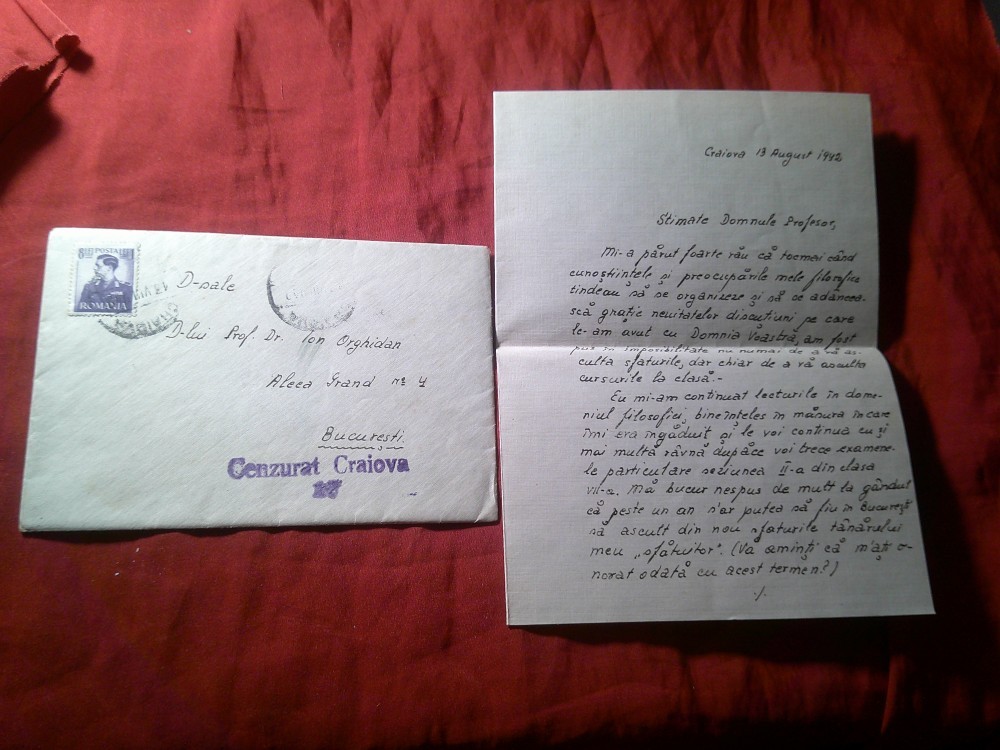 8 LEI POSTA
ROMANIA
D-sale
D-lui Prof. Dr. Ion Orghidan
Aleea Grand No 4
București.
Cenzurat Craiova
Craiova 13 August 1942
Stimate Domnule Profesor,
Mi-a părut foarte rău că tocmai când
cunoștiințele și preocupările mele filosofice
tindeau să se organizeze și să se adânceas-
scă grație neuitatelor discuțiuni pe care
le-am avut cu Domnia Voastră, am fost
pus în imposibilitate nu numai de a vă as-
culta sfaturile, dar chiar de a vă asculta
cursurile la clasă.-
Eu mi-am continuat lecturile în dome-
niul filosofiei, bineînțeles în măsura în care
îmi era îngăduit și le voi continua cu și
mai multă râvnă dupăce voi trece examene-
le particulare sesiunea II-a din clasa
VII-a. Mă bucur nespus de mult la gândul
că peste un an s'ar putea să fiu în București
să ascult din nou sfaturile tânărului
meu „sfătuitor". (Vă amintiți că m'ați o-
norat odată cu acest termen?)
./.